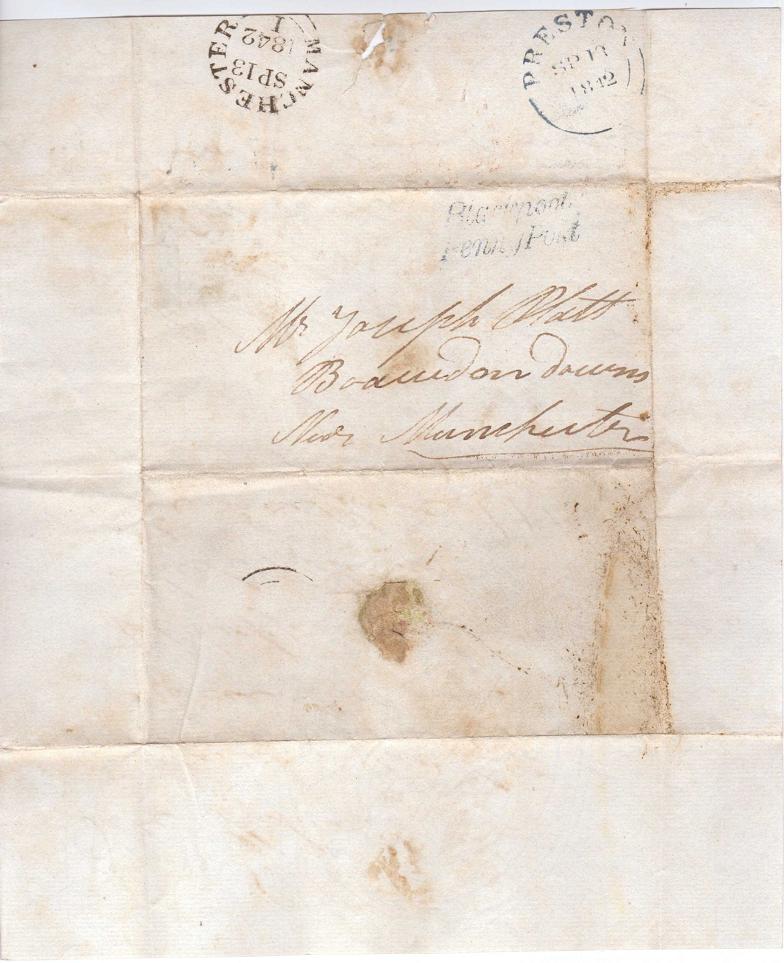 MANCHESTER
1
1842
SP 13
PRESTON
SP 13
1842
Blackpool
Penny Post
Mr Joseph Platt
Boawdon downs
Near Manchester